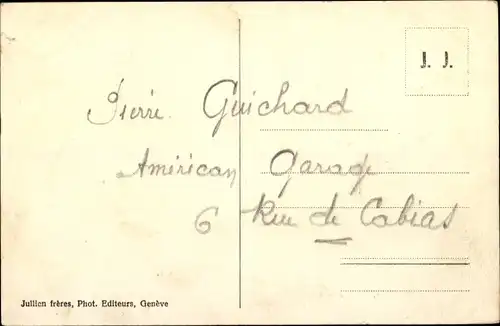 J. J.
Pierre Guichard
Américan Garage
6 Rue de Cabias
Jullien frères, Phot. Editeurs, Genève